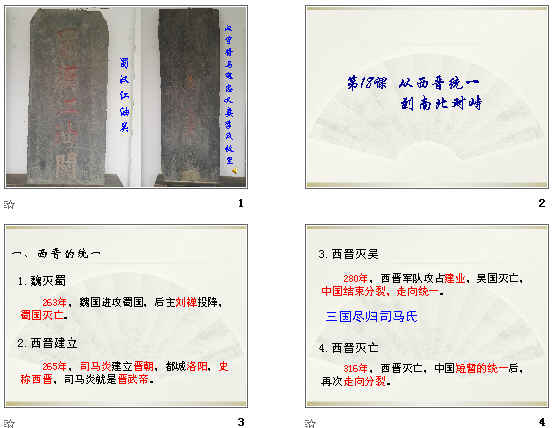 蜀汉江油关
1
第18课 从西晋统一
到南北对峙
2
一、西晋的统一
1.魏灭蜀
263年，魏国进攻蜀国，后主刘禅投降，
蜀国灭亡。
2.西晋建立
265年，司马炎建立晋朝，都城洛阳，史
称西晋，司马炎就是晋武帝。
3
3.西晋灭吴
280年，西晋军队攻占建业，吴国灭亡，
中国结束分裂，走向统一。
三国尽归司马氏
4.西晋灭亡
316年，西晋灭亡，中国短暂的统一后，
再次走向分裂。
4